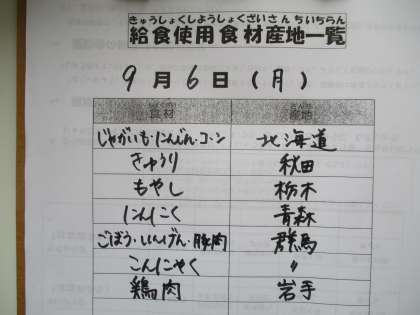 きゅうしょくしようしょくざいさんちいちらん
給食使用食材産地一覧
9月6日(月)
食材 産地
じゃがいも・にんじん・コーン 北海道
きゅうり 秋田
もやし 栃木
にんにく 青森
ごぼう・いんげん・豚肉 群馬
こんにゃく 〃
鶏肉 岩手